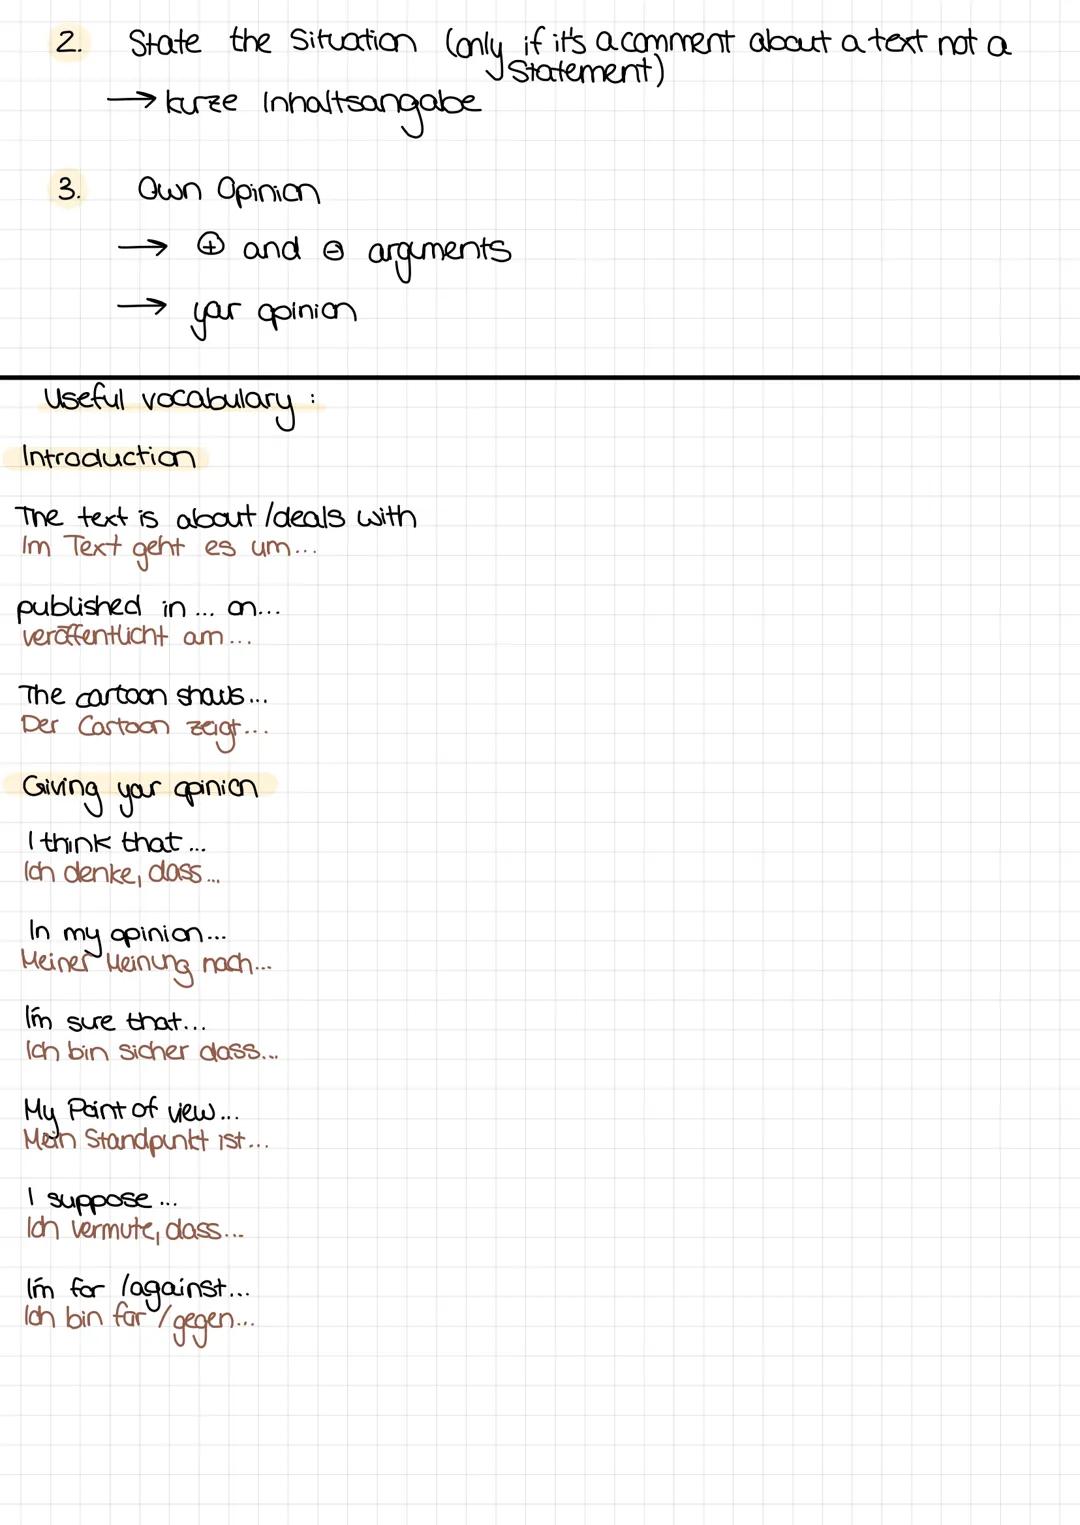 2. State the Situation (only if it's a comment about a text not a
Statement)
→ kurze Inhaltsangabe
3. Own Opinion
→ ⊕ and ⊖ arguments
→ your opinion
Useful vocabulary :
Introduction
The text is about /deals with
Im Text geht es um...
published in ... on...
veröffentlicht am ...
The cartoon shows...
Der Cartoon zeigt...
Giving your opinion
I think that ...
Ich denke, dass ...
In my opinion...
Meiner Meinung nach...
I'm sure that...
Ich bin sicher dass...
My Point of view...
Mein Standpunkt ist...
I suppose ...
Ich vermute, dass...
I'm for /against...
Ich bin für / gegen...